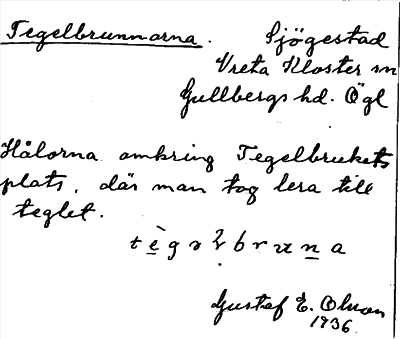 Tegelbrunnarna. Sjögestad
Vreta Kloster sn
Gullbergs hd. Ögl
Hålorna omkring Tegelbrukets
plats, där man tog lera till
teglet.
Gustaf E. Olsson
1936.